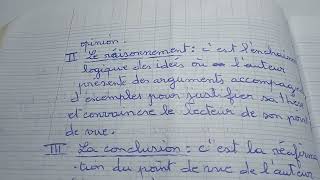 opinion.
II Le raisonnement : c'est l'enchaîn
logique des idées où l'auteur
présente des arguments accompagn
d'exemples pour justifier sa thèse
et convaincre le lecteur de son point
de vue.
III La conclusion : c'est la réafirm
tion du point de vue de l'auteur